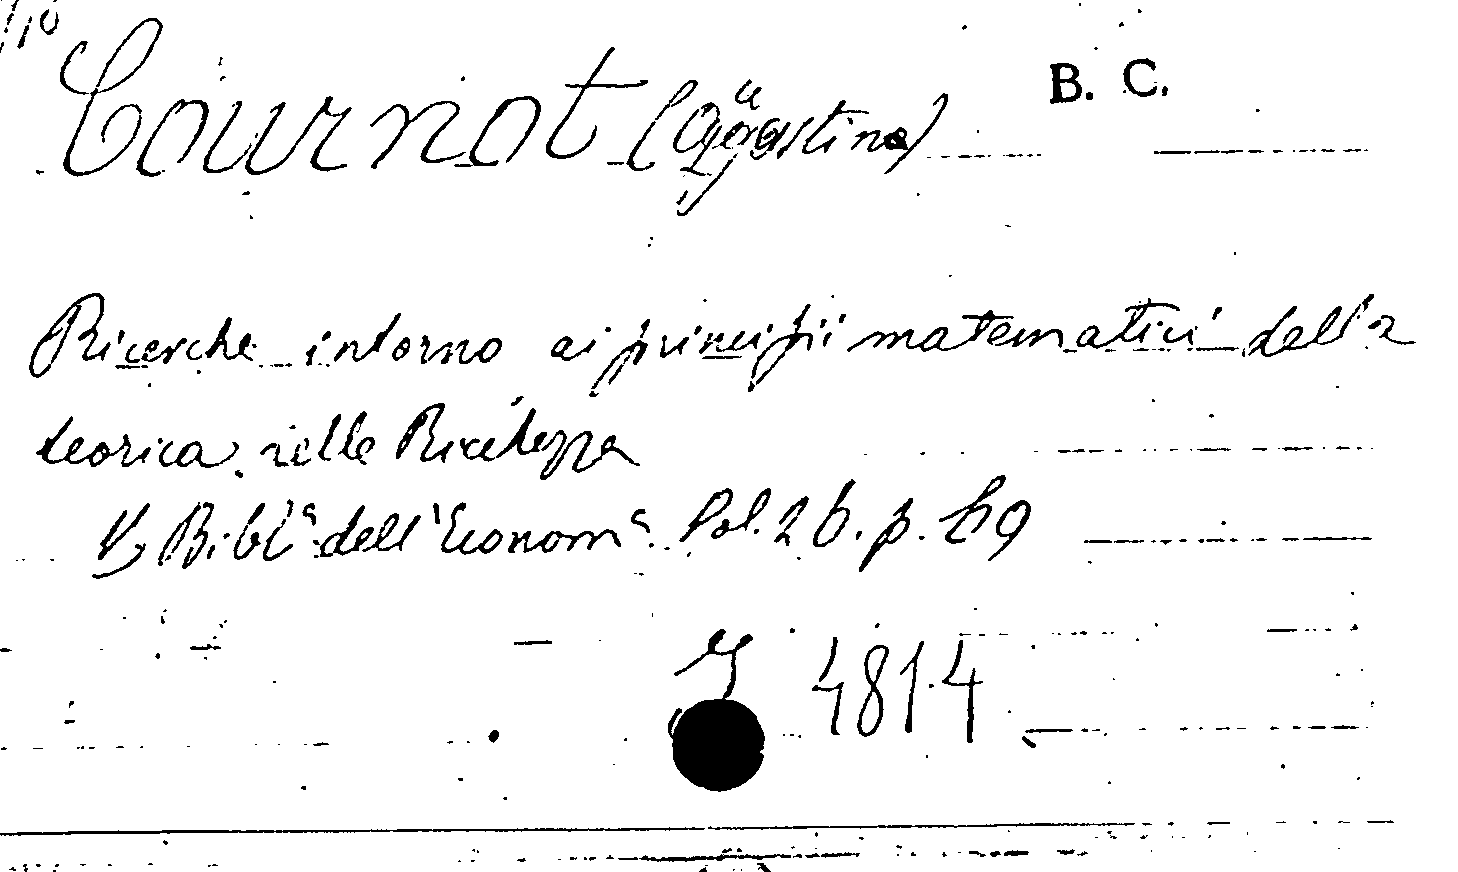 B. C.
Cournot (Agostino)
Ricerche intorno ai principii matematici della
teorica delle Ricchezza
V. Bibl.ª dell'Econom.ª Pol. 2 b. p. 69
Y 4814